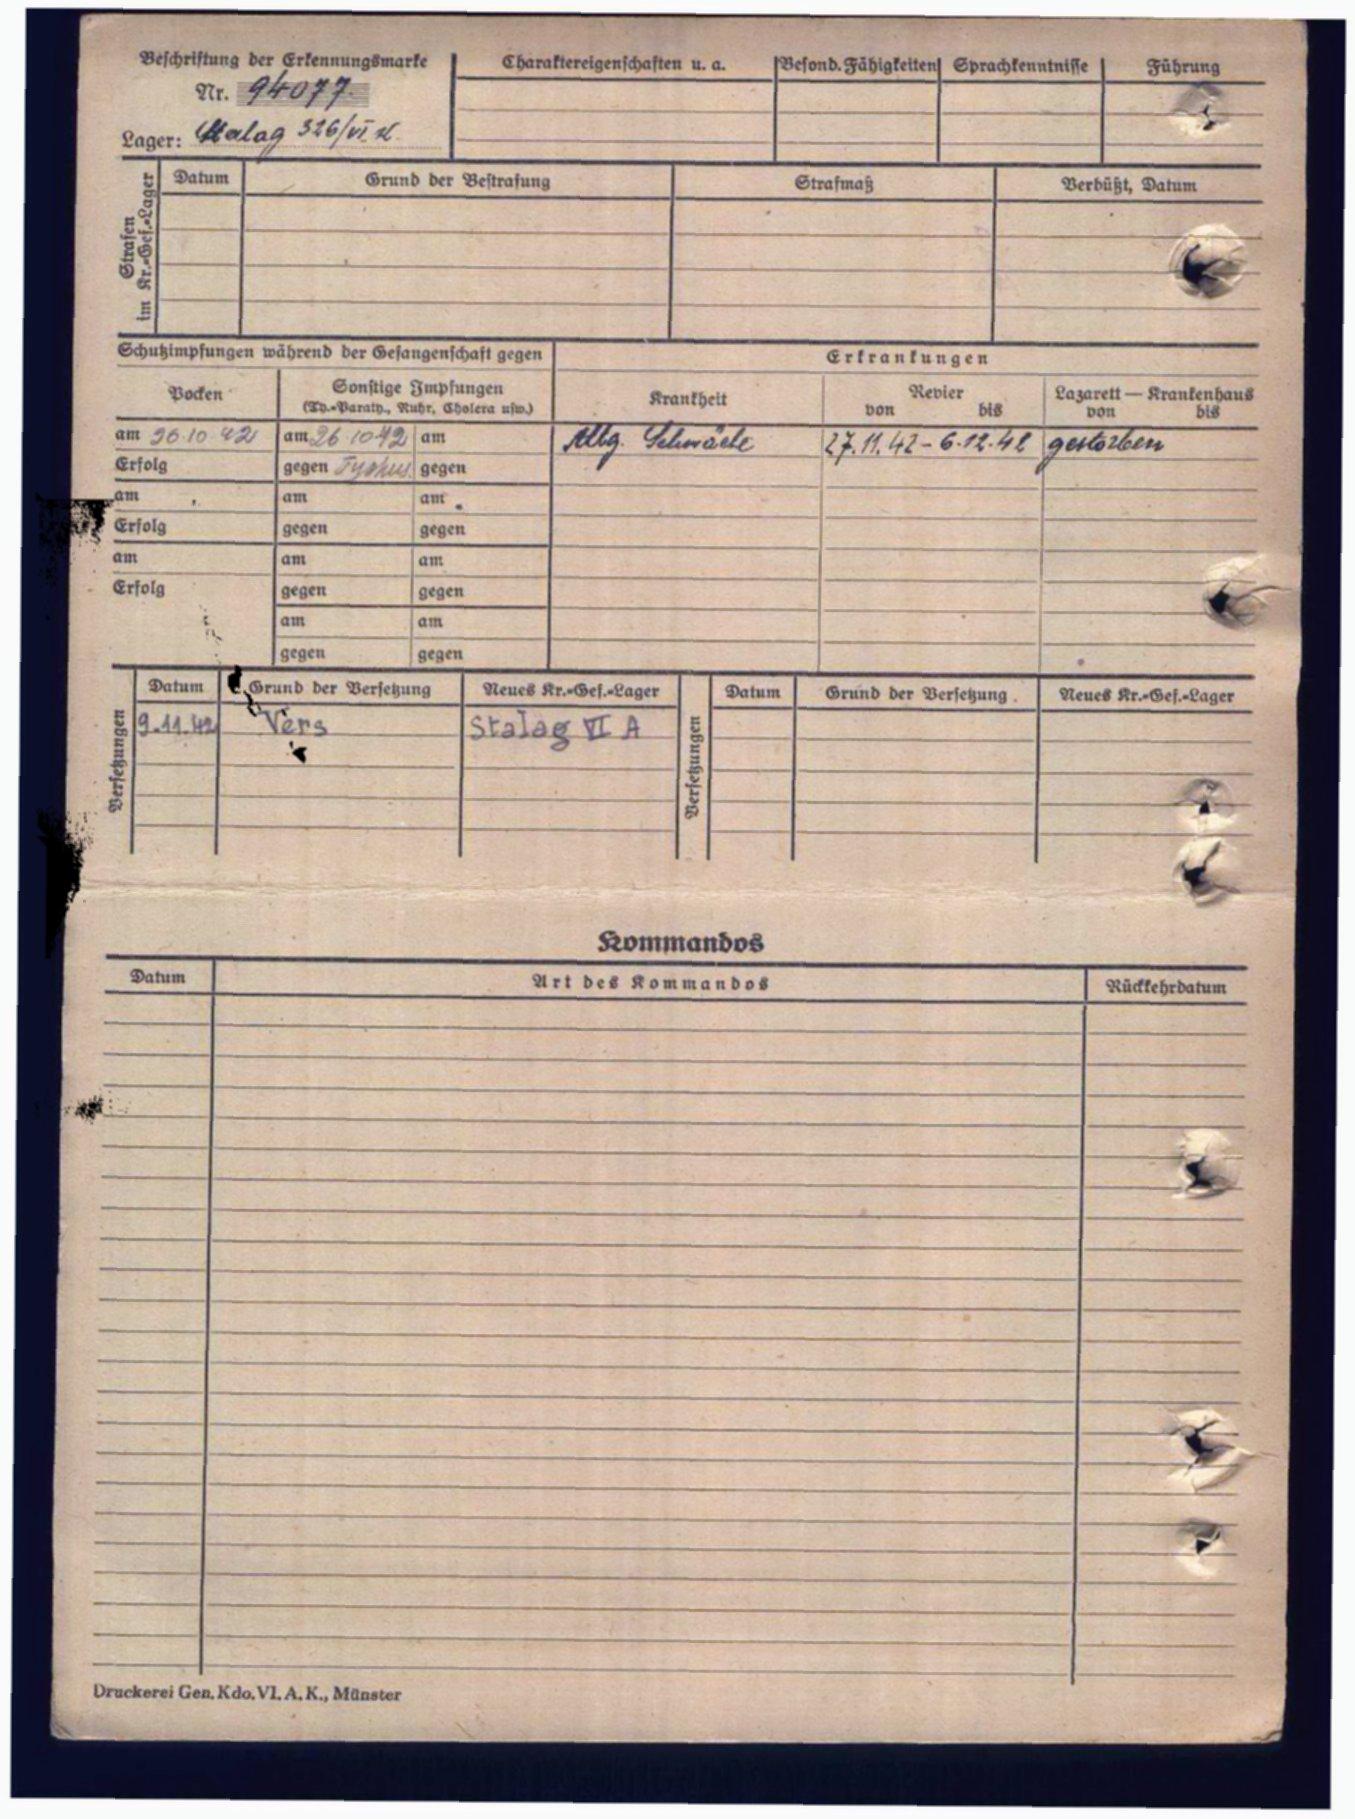 Beschriftung der Erkennungsmarke
Nr. 94077
Lager: Stalag 326/VI K
Charaktereigenschaften u. a.
Besond. Fähigkeiten
Sprachkenntnisse
Führung
Strafen im Kr.-Gef.-Lager
Datum
Grund der Bestrafung
Strafmaß
Verbüßt, Datum
Schutzimpfungen während der Gefangenschaft gegen
Erkrankungen
Pocken
Sonstige Impfungen
(Ty.-Paraty., Ruhr, Cholera usw.)
Krankheit
Revier
von bis
Lazarett — Krankenhaus
von bis
am 26 10 42 am 26 10 42 am
Allg. Schwäche 27.11.42 - 6.12.42 gestorben
Erfolg gegen Typhus gegen
am am am
Erfolg gegen gegen
am am am
Erfolg gegen gegen
am am
gegen gegen
Versetzungen
Datum Grund der Versetzung Neues Kr.-Gef.-Lager
9.11.42 Vers Stalag VI A
Versetzungen
Datum Grund der Versetzung Neues Kr.-Gef.-Lager
Kommandos
Datum Art des Kommandos Rückkehrdatum
Druckerei Gen. Kdo. VI. A. K., Münster